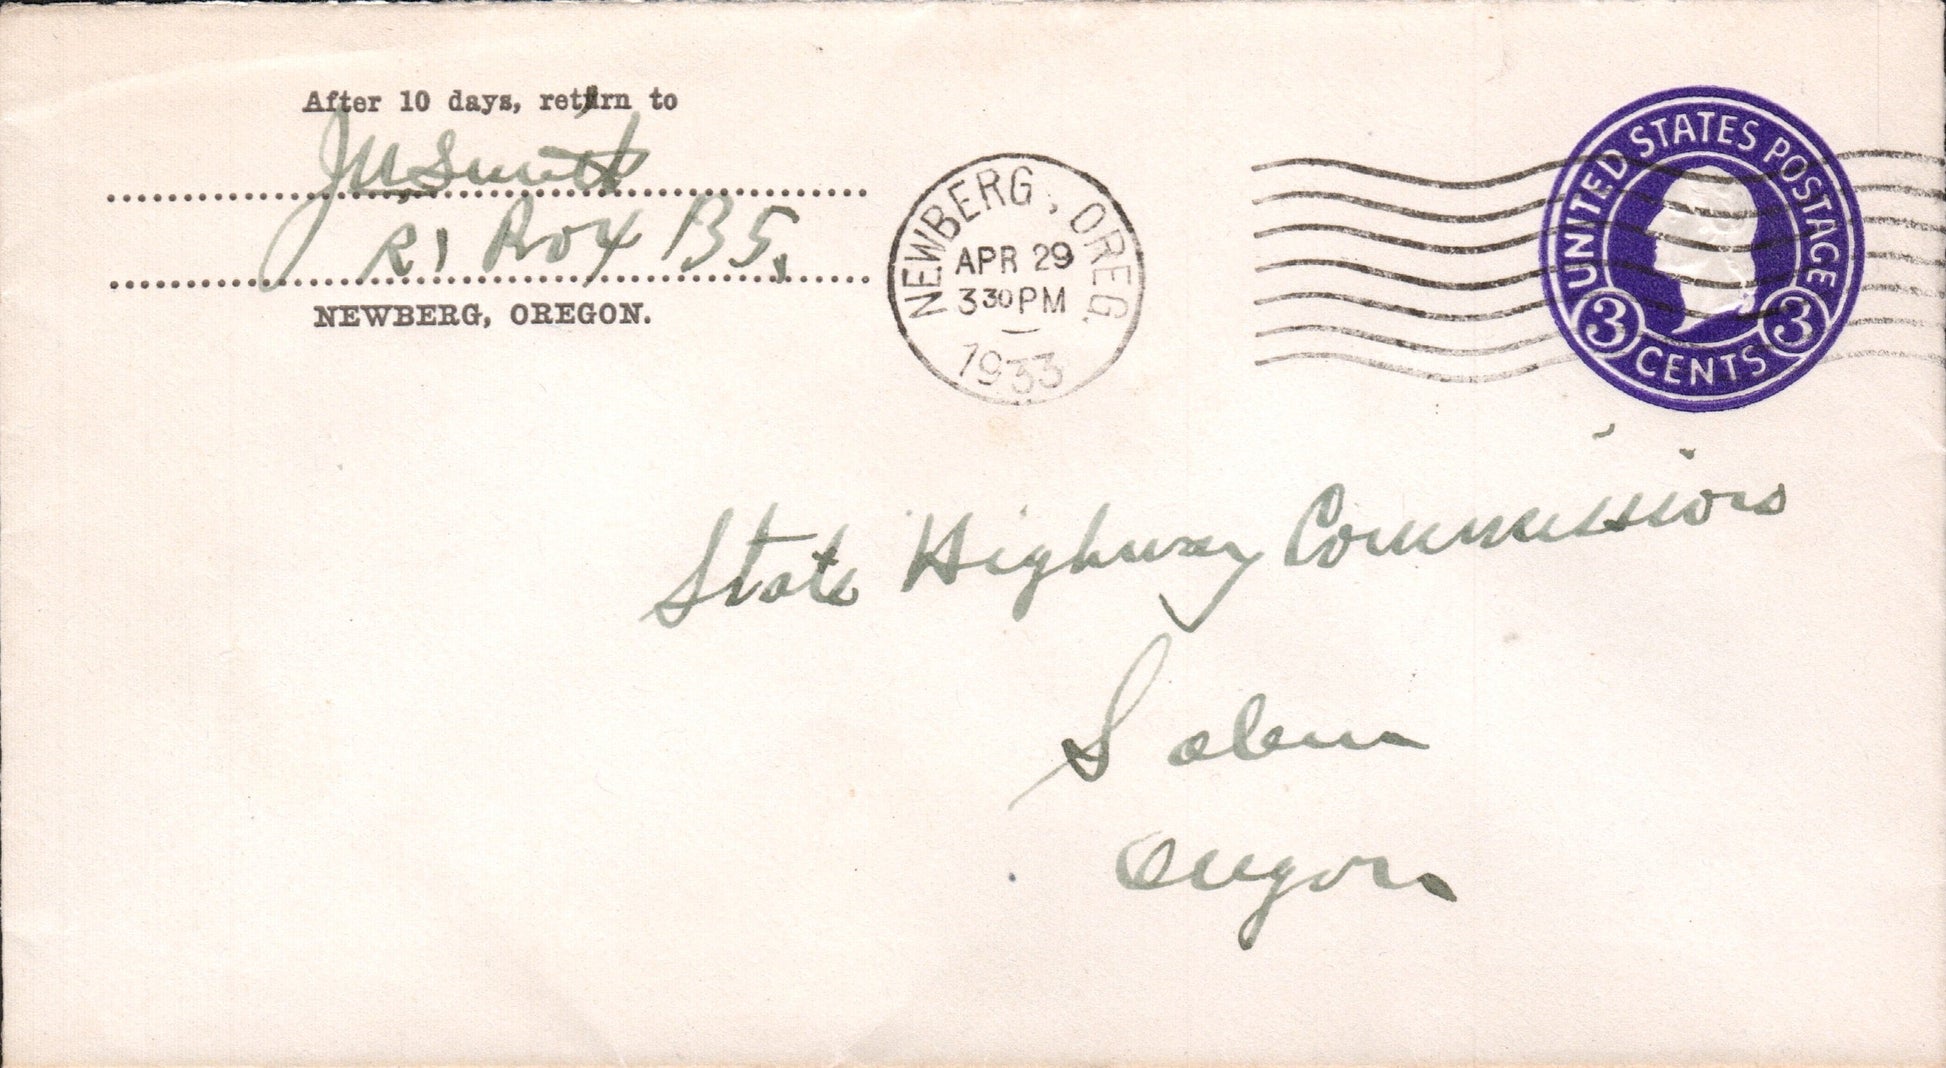 After 10 days, return to
J M Smith
R1 Box B5.
NEWBERG, OREGON.
NEWBERG, OREG.
APR 29
3 30 PM
1933
UNITED STATES POSTAGE
3 CENTS 3
State Highway Commission
Salem
Oregon